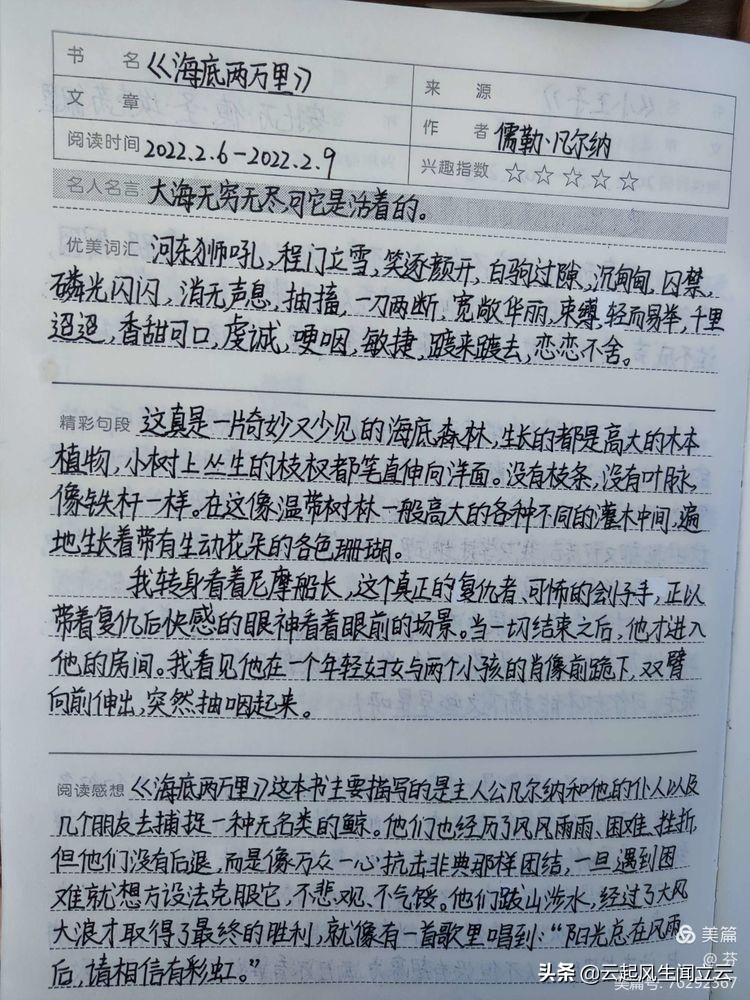 书 名 《海底两万里》
来 源
文 章
作 者 儒勒·凡尔纳
阅读时间 2022.2.6-2022.2.9
兴趣指数 ☆☆☆☆☆
名人名言: 大海无穷无尽可它是活着的。
优美词汇 河东狮吼,程门立雪,笑逐颜开,白驹过隙,沉甸甸,囚禁,
磷光闪闪,消无声息,抽搐,一刀两断,宽敞华丽,束缚,轻而易举,千里
迢迢,香甜可口,虔诚,哽咽,敏捷,踱来踱去,恋恋不舍。
精彩句段 这真是一片奇妙又少见的海底森林,生长的都是高大的木本
植物,小树上丛生的枝杈都笔直伸向洋面。没有枝条,没有叶脉,
像铁杆一样。在这像温带树林一般高大的各种不同的灌木中间,遍
地生长着带有生动花朵的各色珊瑚。
我转身看着尼摩船长,这个真正的复仇者、可怖的刽子手,正以
带着复仇后快感的眼神看着眼前的场景。当一切结束之后,他才进入
他的房间。我看见他在一个年轻妇女与两个小孩的肖像前跪下,双臂
向前伸出,突然抽咽起来。
阅读感想 《海底两万里》这本书主要描写的是主人公凡尔纳和他的仆人以及
几个朋友去捕捉一种无名类的鲸。他们也经历了风风雨雨、困难、挫折,
但他们没有后退,而是像万众一心抗击非典那样团结,一旦遇到困
难就想方设法克服它,不悲观、不气馁。他们跋山涉水,经过了大风
大浪才取得了最终的胜利,就像有一首歌里唱到:“阳光总在风雨
后,请相信有彩虹。”
美篇
@芬
头条 @云起风生闻立云
美篇号: 76252367